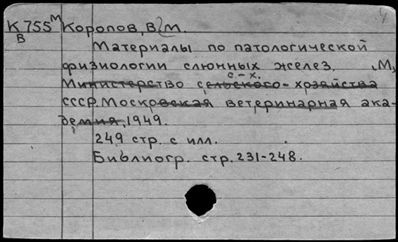 К 755 М Коропов, В. М.
В
Материалы по патологической
физиологии слюнных желез. М,
с-х.
Министерство сельского-хозяйства
СССР. Московская ветеринарная ака-
демия, 1949.
249 стр. с илл.
Библиогр. стр. 231-248.